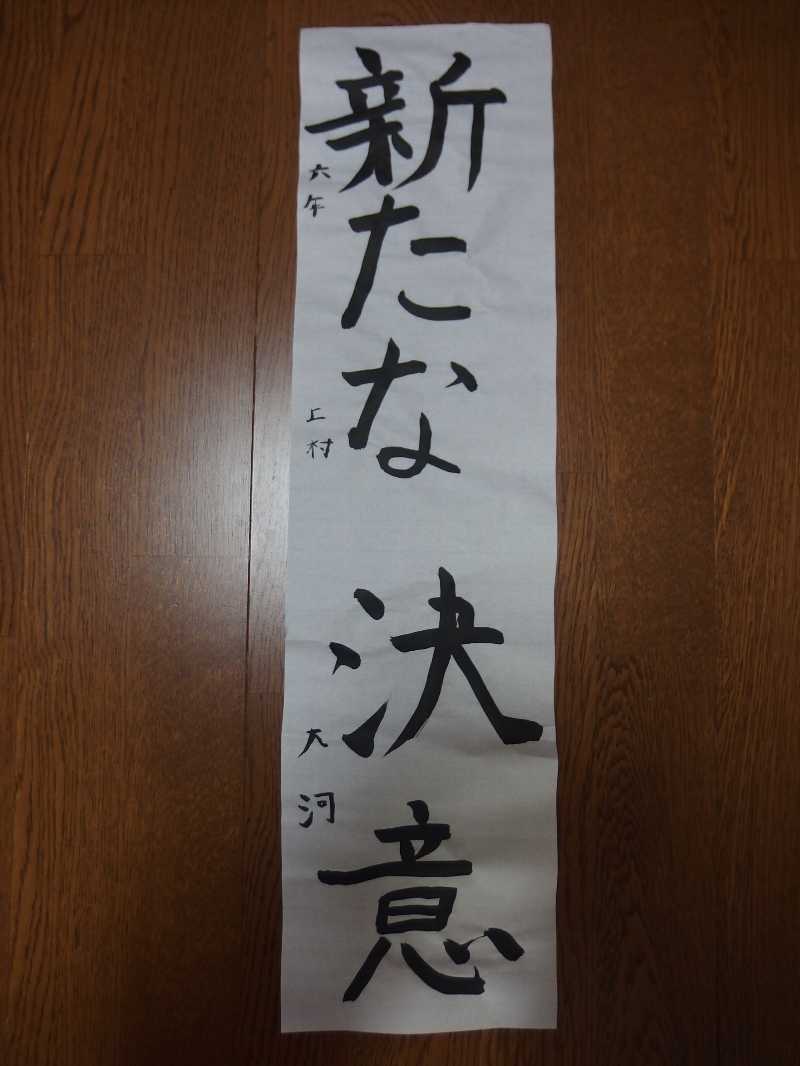 新たな決意
六年 上村 大河